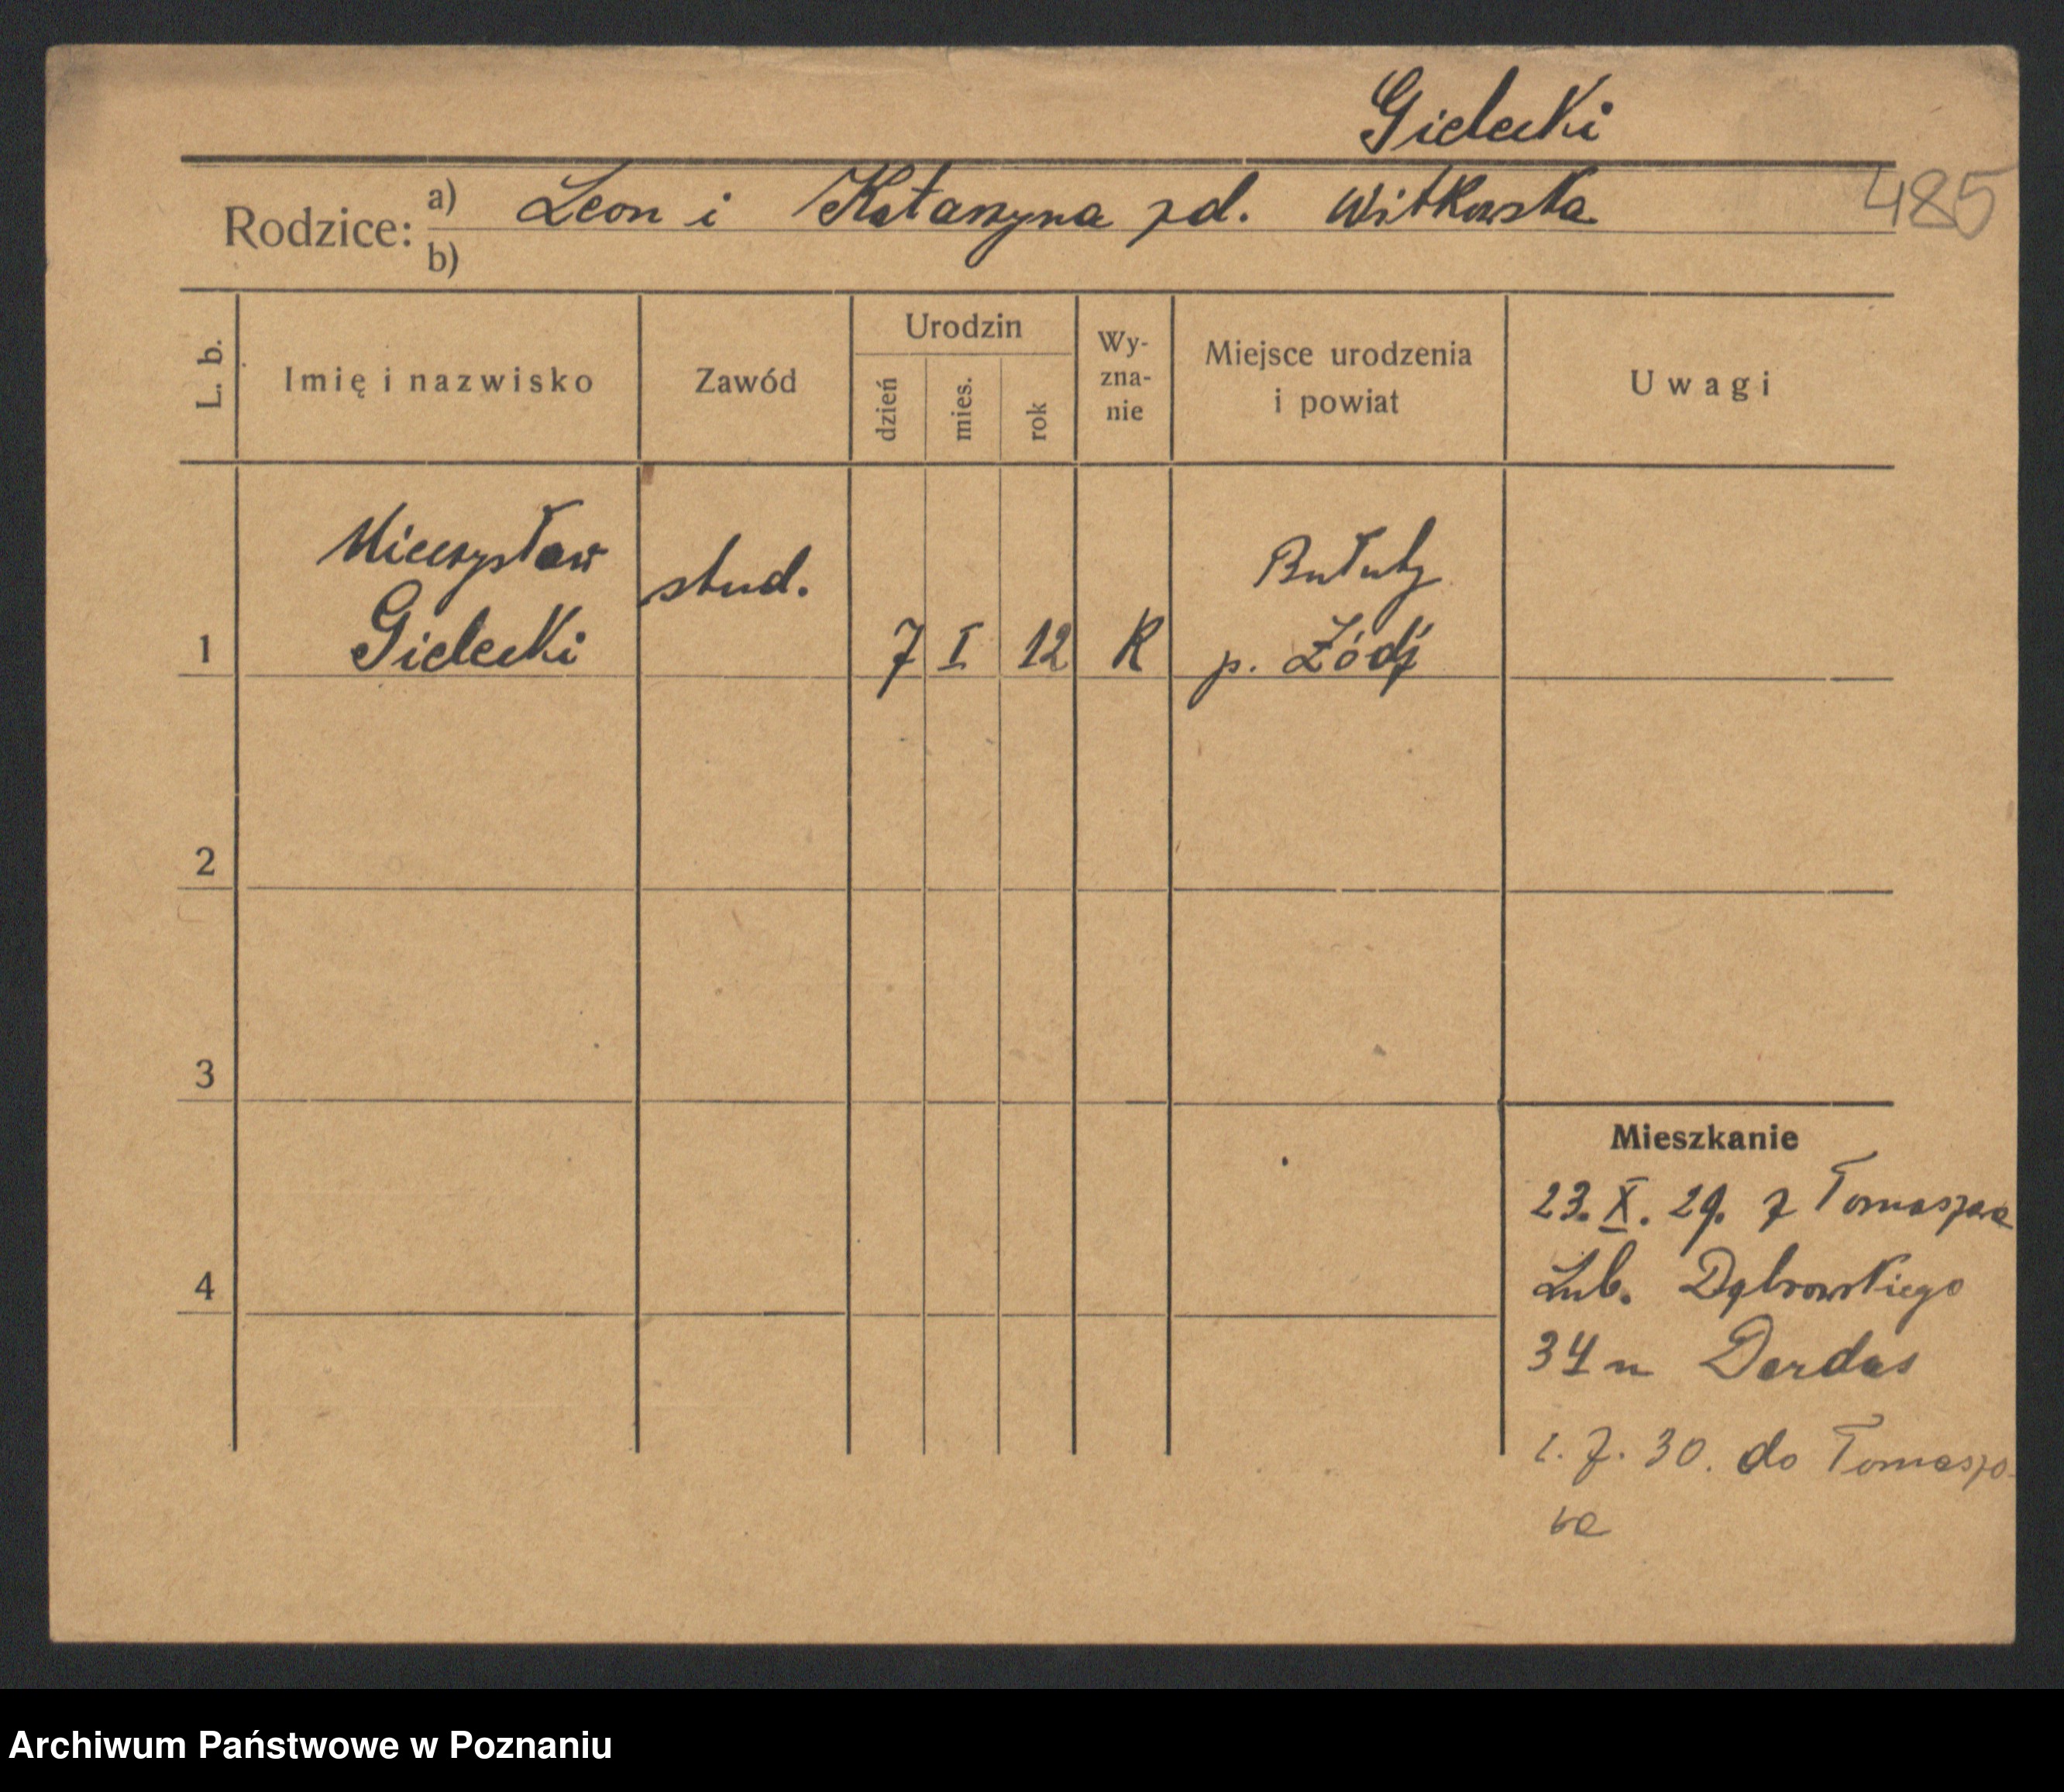 Gielecki
485
Rodzice: a) Leon i Katarzyna zd. Witkowska
b)
L. b. Imię i nazwisko Zawód Urodzin dzień mies. rok Wy-zna-nie Miejsce urodzenia i powiat Uwagi
Mieczysław stud. Bałuty
1 Gielecki 7 I 12 R p. Łódź
2
3
Mieszkanie
23. X. 29. z Tomaszowa
4 Lub. Dąbrowskiego
34 Dardas
1. 7. 30. do Tomaszo-
wa
Archiwum Państwowe w Poznaniu